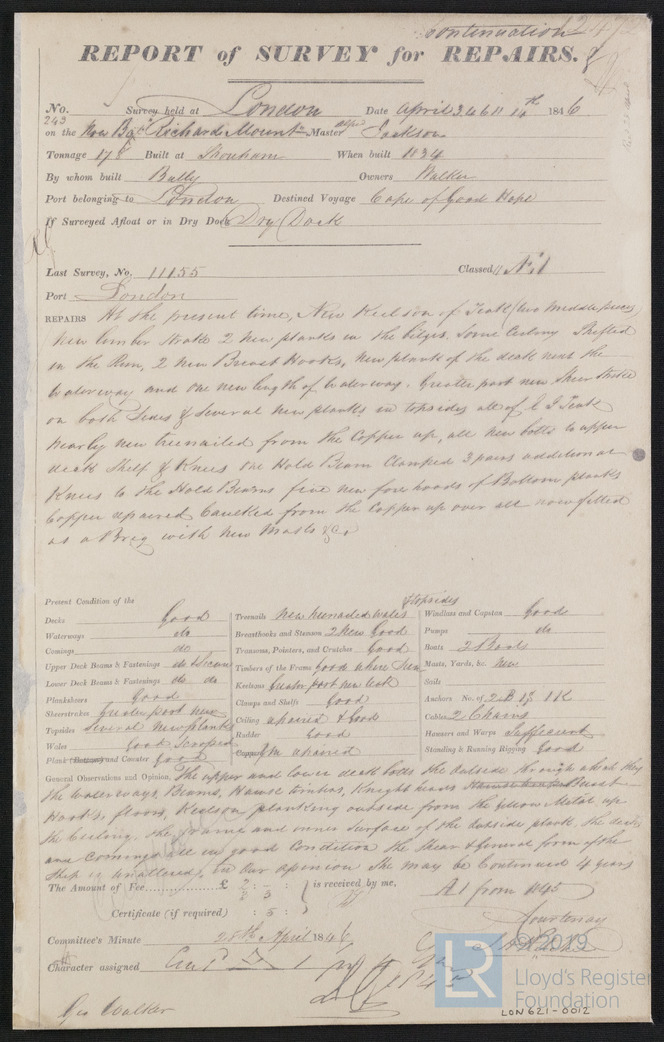 Continuation
REPORT of SURVEY for REPAIRS.
No. 243 Survey held at London Date April 3. 4 6 11 14th 1846
on the Now Bg Richard Mount Master Jackson
Tonnage 178 Built at Shoreham When built 1834
By whom built Bally Owners Walker
Port belonging to London Destined Voyage Cape of Good Hope
If Surveyed Afloat or in Dry Dock Dry Dock
Last Survey, No. 11155 Classed
Port London
REPAIRS At the present time, New Keelson of Teak (two middle pieces)
New limber Strake 2 new planks in the bilges, Some Ceiling Shifted
in the Run, 2 new Breast Hooks, New plank of the deck next the
Waterway and one new length of Waterway. Greater part new Sheer Strake
on both Sides & Several new planks in topsides all of Teak
Nearly new treenailed from the Copper up, all new bolts to upper
deck Shelf & Knees One Hold Beam Clamped 3 pairs additional
Knees to the Hold Beams five new fore hoods of Bottom planks
Copper repaired Caulked from the Copper up over all now fitted
as a Brig with new Masts &c
Present Condition of the
Decks Good
Waterways do
Comings do
Upper Deck Beams & Fastenings do
Lower Deck Beams & Fastenings do do
Planksheers Good
Sheerstrakes Greater part new
Topsides Several new planks
Wales Good Scraped
Plank and Counter Good
Treenails New treenailed wales & topsides
Breasthooks and Stemson 2 New Good
Transoms, Pointers, and Crutches Good
Timbers of the Frame Good where seen
Keelsons Greater part new teak
Clamps and Shelfs Good
Ceiling repaired & Good
Rudder Good
Copper repaired
Windlass and Capstan Good
Pumps do
Boats 2 Boats
Masts, Yards, &c. New
Sails
Anchors No. of 2 B 1 S. 1 K
Cables 2 Chains
Hawsers and Warps Sufficient
Standing & Running Rigging Good
General Observations and Opinion, The upper and lower deck bolts the outside through
the Waterways, Beams, Hawse timbers, Knight heads Breast
Hooks, floors, Keelson planking outside from the Yellow Metal up
the Ceiling, the frame and inner Surface of the outside plank, the decks
and Comings all in good Condition the Shear & General form of the
Ship is unaltered, in our opinion She may be Continued 4 years
The Amount of Fee is received by me, A1 from 1845
Certificate (if required) : 5 : Courtenay
Committee's Minute 28th April 1846
Character assigned
Geo Walker
© 2019
LR
Lloyd's Register
Foundation
LON 621-0012